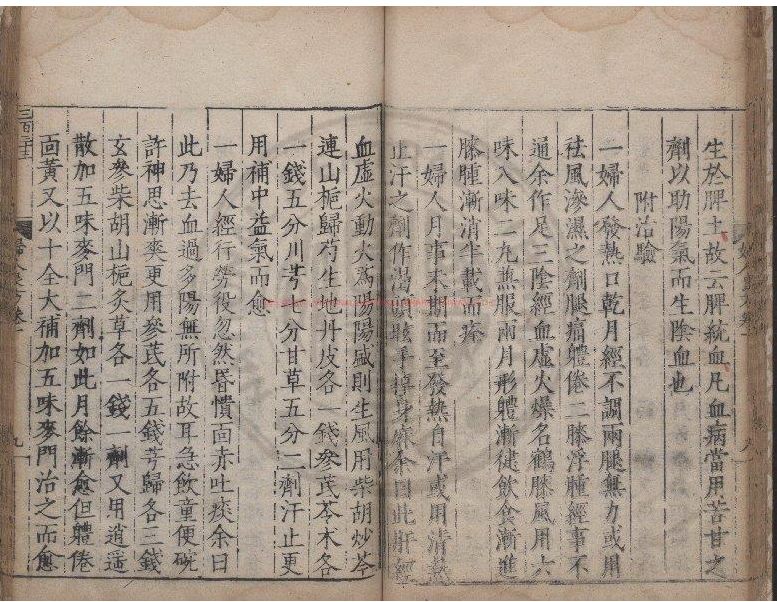 生於脾土故云脾統血凡血病當用苦甘之
劑以助陽氣而生陰血也
附治驗
一婦人發熱口乾月經不調兩腿無力或用
祛風滲濕之劑腿痛體倦二膝浮腫經事不
通余作足三陰經血虛火燥名鶴膝風用六
味八味二丸兼服兩月形體漸健飲食漸進
膝腫漸消半載而痊
一婦人月事未期而至發熱自汗或用清熱
止汗之劑作渴頭眩手掉身麻余曰此肝經
血虛火動火爲陽陽盛則生風用柴胡炒芩
連山梔歸芍生地丹皮各一錢參芪苓朮各
一錢五分川芎七分甘草五分二劑汗止更
用補中益氣而愈
一婦人經行勞役忽然昏憒面赤吐痰余曰
此乃去血過多陽無所附故耳急飲童便
許神思漸爽更用參芪各五錢芎歸各三錢
玄參柴胡山梔炙草各一錢一劑又用逍遥
散加五味麥門二劑如此月餘漸愈但體倦
面黃又以十全大補加五味麥門治之而愈
婦人良方卷一
九